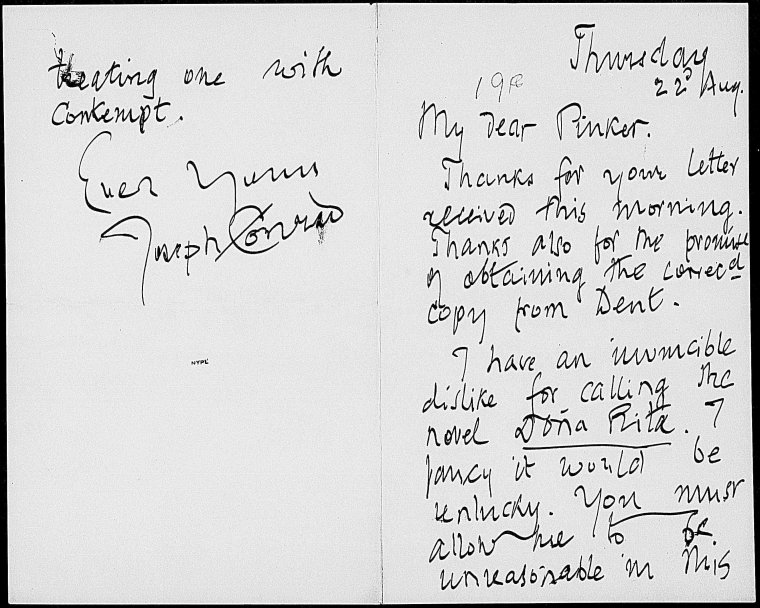 Thursday
22d Aug.
My Dear Pinker.
Thanks for your letter
received this morning.
Thanks also for the promise
of obtaining the correcd
copy from Dent.
I have an invincible
dislike for calling the
novel Doña Rita. I
fancy it would be
unlucky. You must
allow me to be
unreasonable in this
treating one with
Contempt.
Ever Yours
Joseph Conrad
NYPL